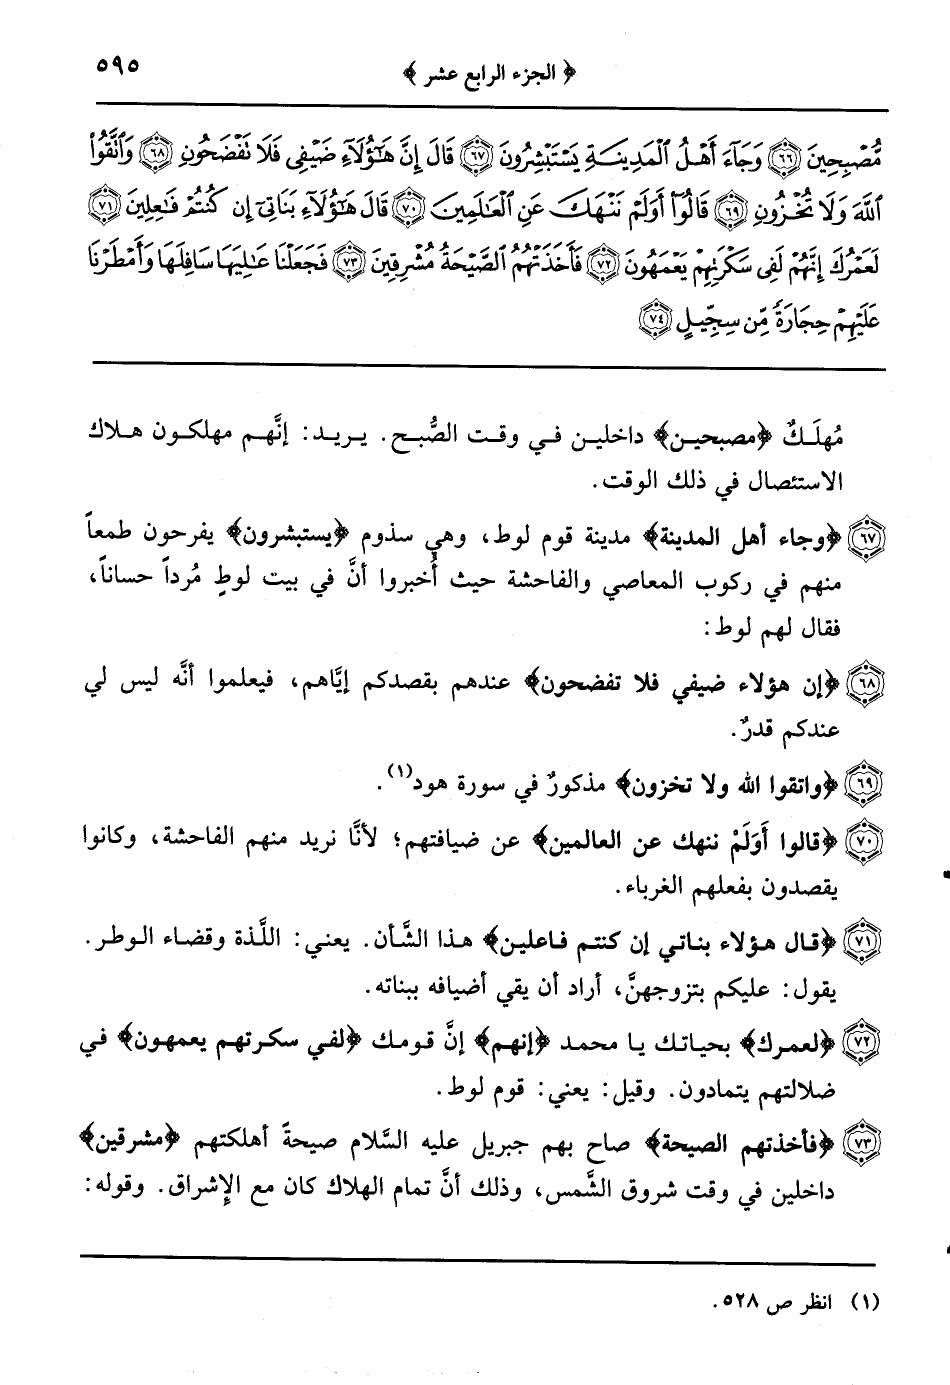 ﴿ الجزء الرابع عشر ﴾
٥٩٥
مُّصْبِحِينَ ۝٦٦ وَجَآءَ أَهْلُ ٱلْمَدِينَةِ يَسْتَبْشِرُونَ ۝٦٧ قَالَ إِنَّ هَٰٓؤُلَآءِ ضَيْفِى فَلَا تَفْضَحُونِ ۝٦٨ وَٱتَّقُوا۟
ٱللَّهَ وَلَا تُخْزُونِ ۝٦٩ قَالُوٓا۟ أَوَلَمْ نَنْهَكَ عَنِ ٱلْعَٰلَمِينَ ۝٧٠ قَالَ هَٰٓؤُلَآءِ بَنَاتِىٓ إِن كُنتُمْ فَٰعِلِينَ ۝٧١
لَعَمْرُكَ إِنَّهُمْ لَفِى سَكْرَتِهِمْ يَعْمَهُونَ ۝٧٢ فَأَخَذَتْهُمُ ٱلصَّيْحَةُ مُشْرِقِينَ ۝٧٣ فَجَعَلْنَا عَٰلِيَهَا سَافِلَهَا وَأَمْطَرْنَا
عَلَيْهِمْ حِجَارَةً مِّن سِجِّيلٍ ۝٧٤
مُهلَكٌ ﴿مصبحين﴾ داخلين في وقت الصُّبح. يريد: إنَّهم مهلكون هلاك
الاستئصال في ذلك الوقت.
٦٧ ﴿وجاء أهل المدينة﴾ مدينة قوم لوط، وهي سذوم ﴿يستبشرون﴾ يفرحون طمعاً
منهم في ركوب المعاصي والفاحشة حيث أُخبروا أنَّ في بيت لوطٍ مُرداً حساناً،
فقال لهم لوط:
٦٨ ﴿إن هؤلاء ضيفي فلا تفضحون﴾ عندهم بقصدكم إيَّاهم، فيعلموا أنَّه ليس لي
عندكم قدرٌ.
٦٩ ﴿واتقوا الله ولا تخزون﴾ مذكورٌ في سورة هود(١).
٧٠ ﴿قالوا أَوَلَمْ ننهك عن العالمين﴾ عن ضيافتهم؛ لأنَّا نريد منهم الفاحشة، وكانوا
يقصدون بفعلهم الغرباء.
٧١ ﴿قال هؤلاء بناتي إن كنتم فاعلين﴾ هذا الشَّأن. يعني: اللَّذة وقضاء الوطر.
يقول: عليكم بتزوجهنَّ، أراد أن يقي أضيافه ببناته.
٧٢ ﴿لعمرك﴾ بحياتك يا محمد ﴿إنهم﴾ إنَّ قومك ﴿لفي سكرتهم يعمهون﴾ في
ضلالتهم يتمادون. وقيل: يعني: قوم لوط.
٧٣ ﴿فأخذتهم الصيحة﴾ صاح بهم جبريل عليه السَّلام صيحةً أهلكتهم ﴿مشرقين﴾
داخلين في وقت شروق الشَّمس، وذلك أنَّ تمام الهلاك كان مع الإِشراق. وقوله:
(١) انظر ص ٥٢٨.